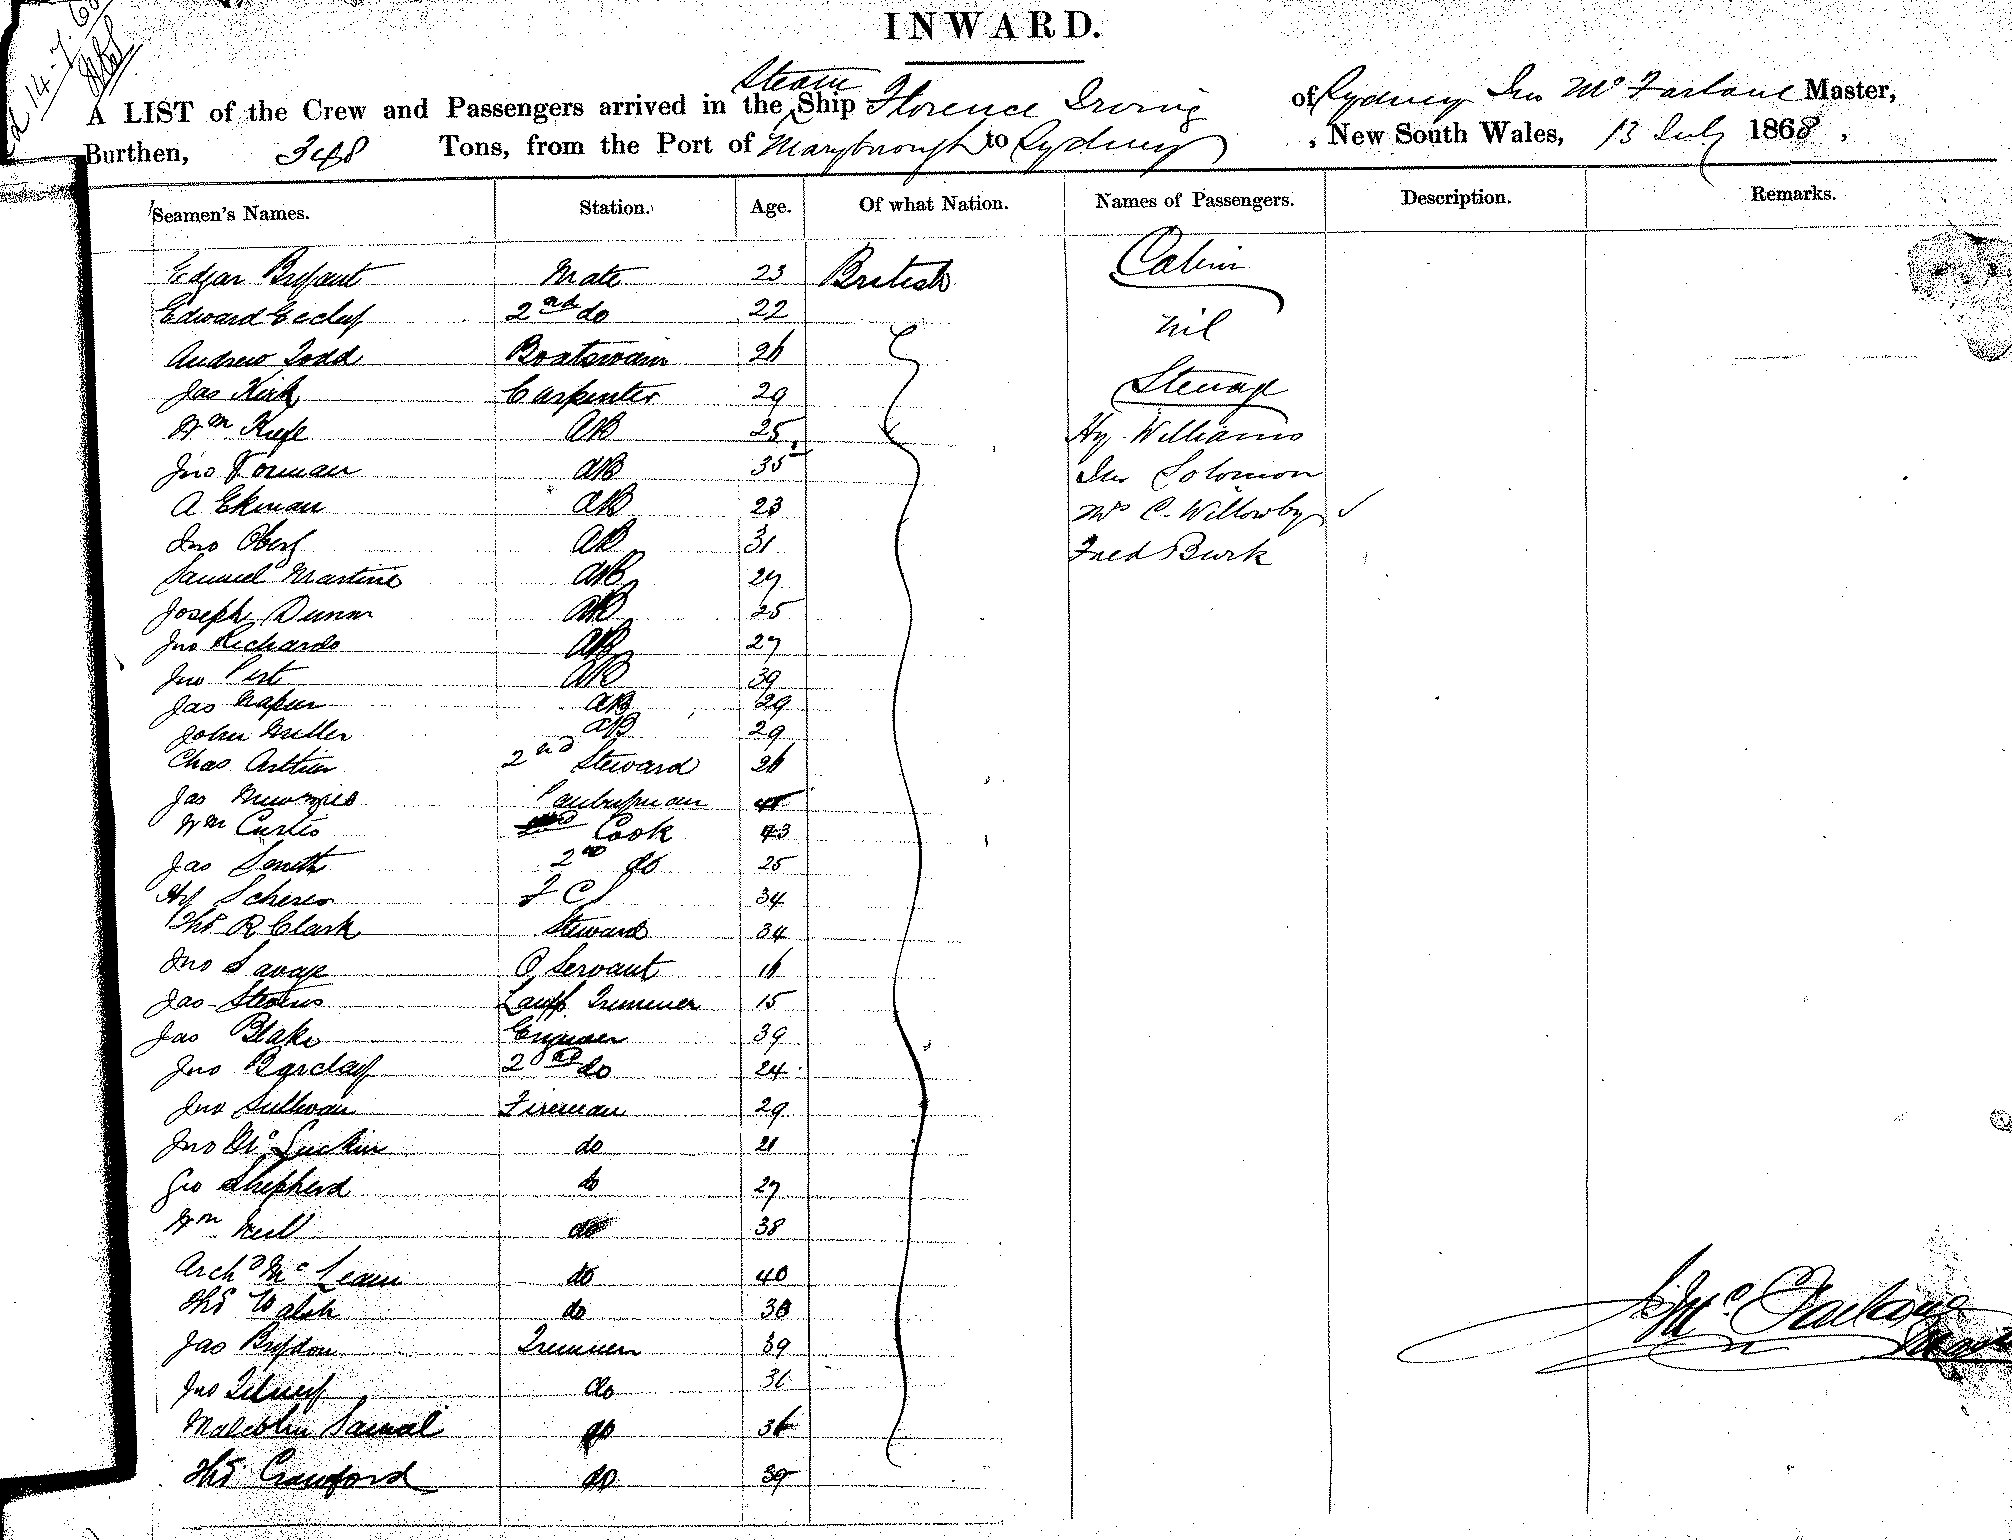 14-7-68
INWARD.
A LIST of the Crew and Passengers arrived in the Steam Ship Florence Irving of Sydney Jno Mc Farlane Master,
Burthen, 348 Tons, from the Port of Maryborough to Sydney, New South Wales, 13 July 1868.
Seamen's Names. Station. Age. Of what Nation. Names of Passengers. Description. Remarks.
Edgar Bryant Mate 23 British Cabin
Edward 2nd do 22 nil
Andrew Todd Boatswain 26
Jas Kirk Carpenter 29 Steerage
Wm Keefe AB 25 Hy Williams
Jno Forman AB 35 Jno Solomon
A Ekman AB 23 Mrs C. Willowby ✓
Jno Oberg AB 31 Fred Burk
Samuel Martine AB 27
Joseph Dunn AB 25
Jno Richards AB 27
Jno Pert AB 39
Jas Napier AB 29
John Miller AB 29
Chas Arthur 2nd Steward 26
Jas Menzies Pantryman
Wm Curtis Cook 43
Jas Smith 2nd do 25
Hy F C S 34
Thos R Clark Steward 34
Jno Savage Servant 16
Jas Stevens Lamp Trimmer 15
Jas Blake Engineer 39
Jno Barclay 2nd do 24
Jno Sullivan Fireman 29
Jno Mc Luckie do 21
Geo Shepherd do 27
Wm Neill do 38
Archd Mc Lean do 40
Thos Walsh do 30
Jas Brydon Trimmer 39
Jno do
Malcolm do 36
Thos Crawford do 39
J Mc Farlane
Master